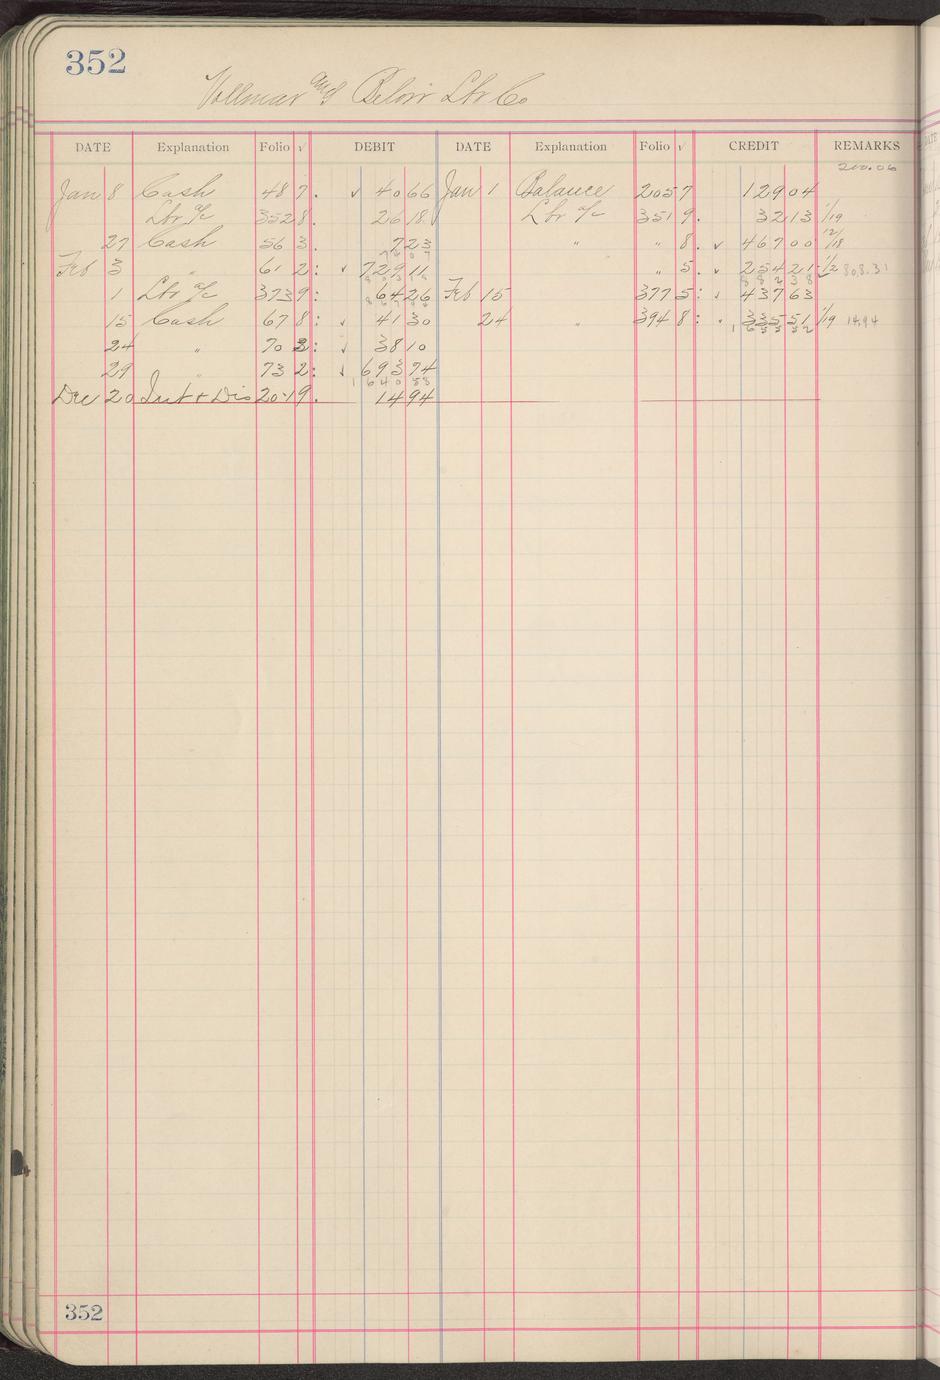 352
Vollmar and Below Lbr Co
DATE Explanation Folio √ DEBIT DATE Explanation Folio √ CREDIT REMARKS
200.06
Jan 8 Cash 48 7. √ 40 66 Jan 1 Balance 205 7 129 04
Lbr a/c 352 8. 26 18 Lbr a/c 351 9. 32 13 1/19
27 Cash 56 3. 7 23 " " 8. √ 467 00 12/18
74 07
Feb 3 " 61 2: √ 729 11 " 5. √ 254 21 1/2 808.31
882 38
1 Lbr a/c 373 9: 64 26 Feb 15 377 5: √ 437 63
15 Cash 67 8: √ 41 30 24 394 8: √ 335 51 1/19 14.94
24 " 70 3: √ 38 10
29 " 73 2: √ 693 74
1640 58
Dec 20 Int + Dis 201 9. 14 94
352